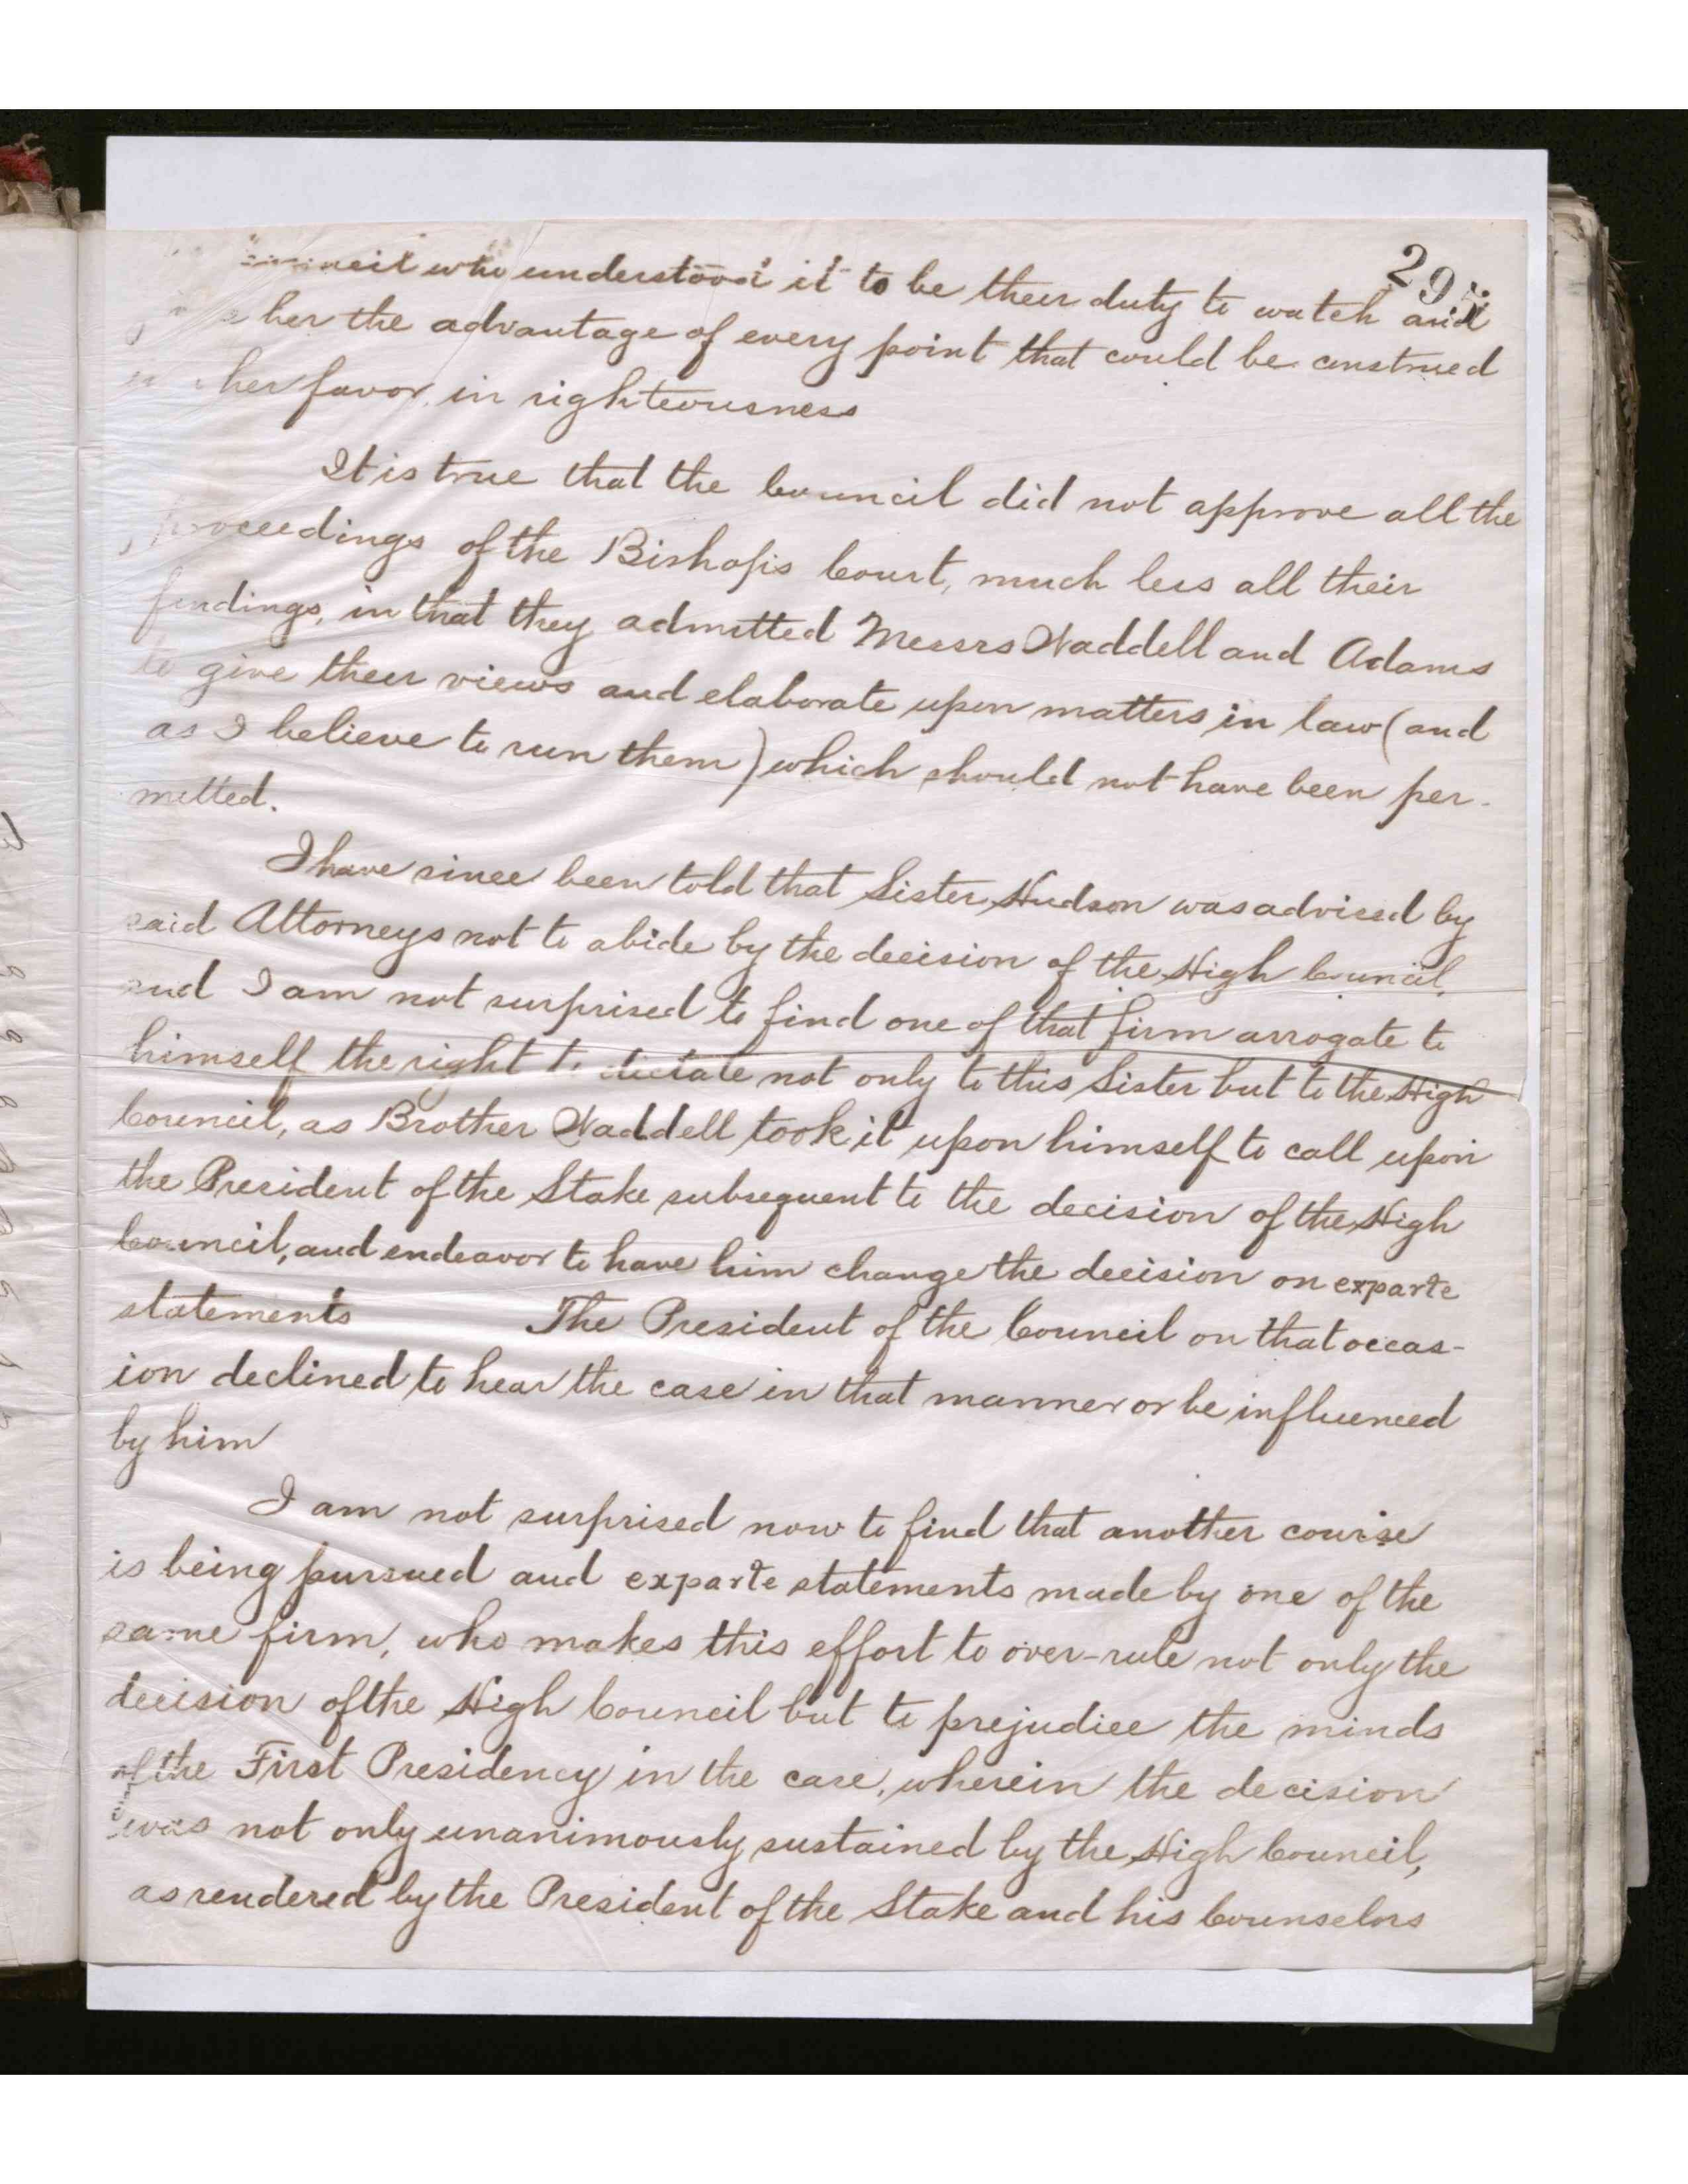 295
Council who understood it to be their duty to watch and
give her the advantage of every point that could be construed
in her favor, in righteousness
It is true that the Council did not approve all the
proceedings of the Bishops Court, much less all their
findings, in that they admitted Messrs Waddell and Adams
to give their views and elaborate upon matters in law (and
as I believe to run them) which should not have been per-
mitted.
I have since been told that Sister Hudson was advised by
said Attorneys not to abide by the decision of the High Council,
and I am not surprised to find one of that firm arrogate to
himself the right to dictate not only to this Sister but to the High
Council, as Brother Waddell took it upon himself to call upon
the President of the Stake subsequent to the decision of the High
Council, and endeavor to have him change the decision on exparte
statements The President of the Council on that occas-
ion declined to hear the case in that manner or be influenced
by him
I am not surprised now to find that another course
is being pursued and exparte statements made by one of the
same firm, who makes this effort to over-rule not only the
decision of the High Council but to prejudice the minds
of the First Presidency in the case, wherein the decision
was not only unanimously sustained by the High Council,
as rendered by the President of the Stake and his Counselors